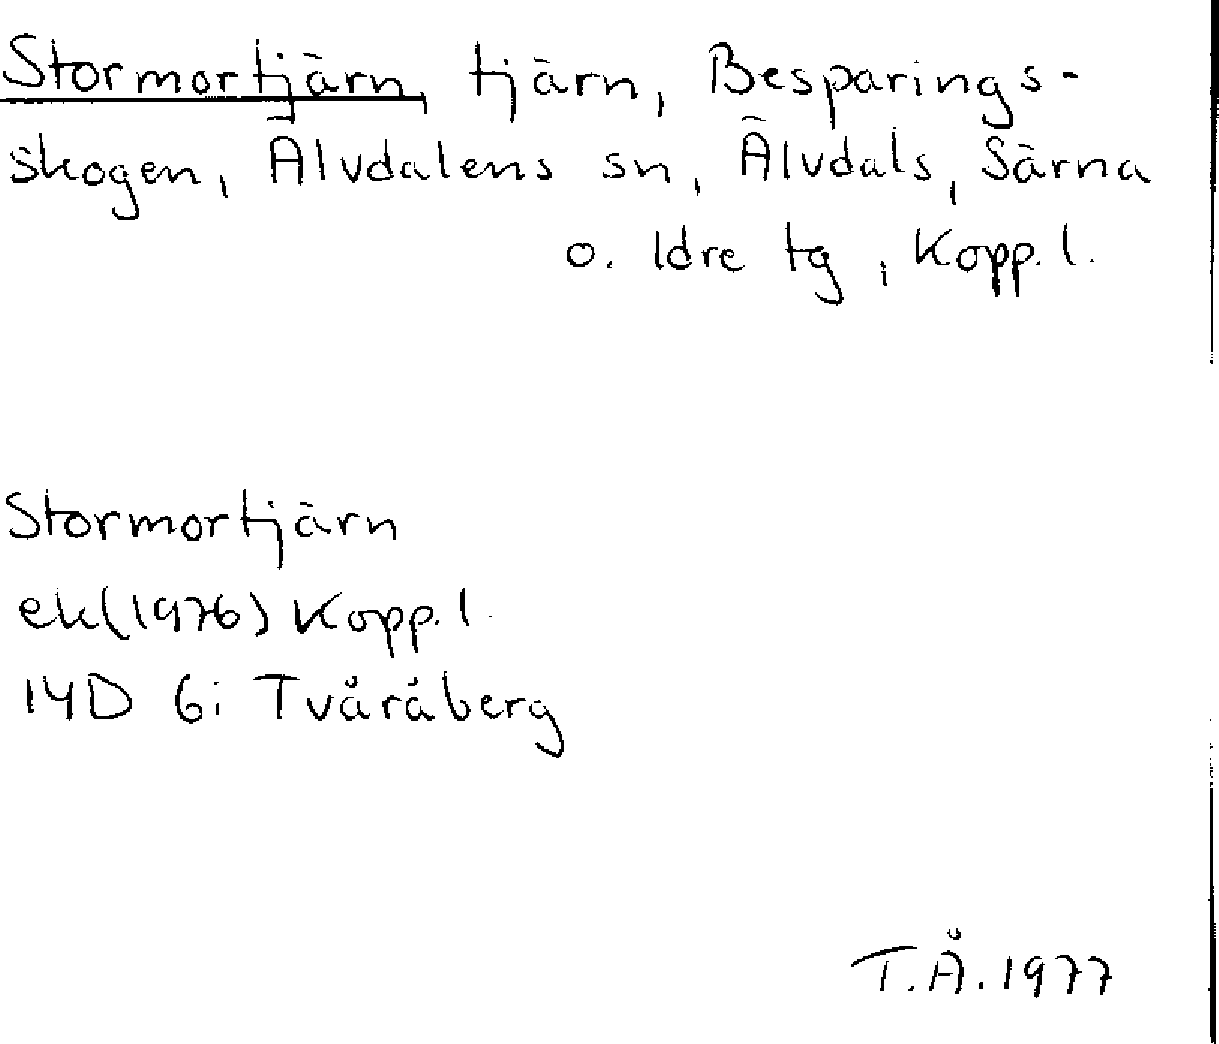 Stormortjärn, tjärn, Besparings-
skogen, Älvdalens sn, Älvdals, Särna
o. Idre tg, Kopp. l.
Stormortjärn
ek(1976) Kopp. l.
14D 6i Tvåråberg
T.Å. 1977